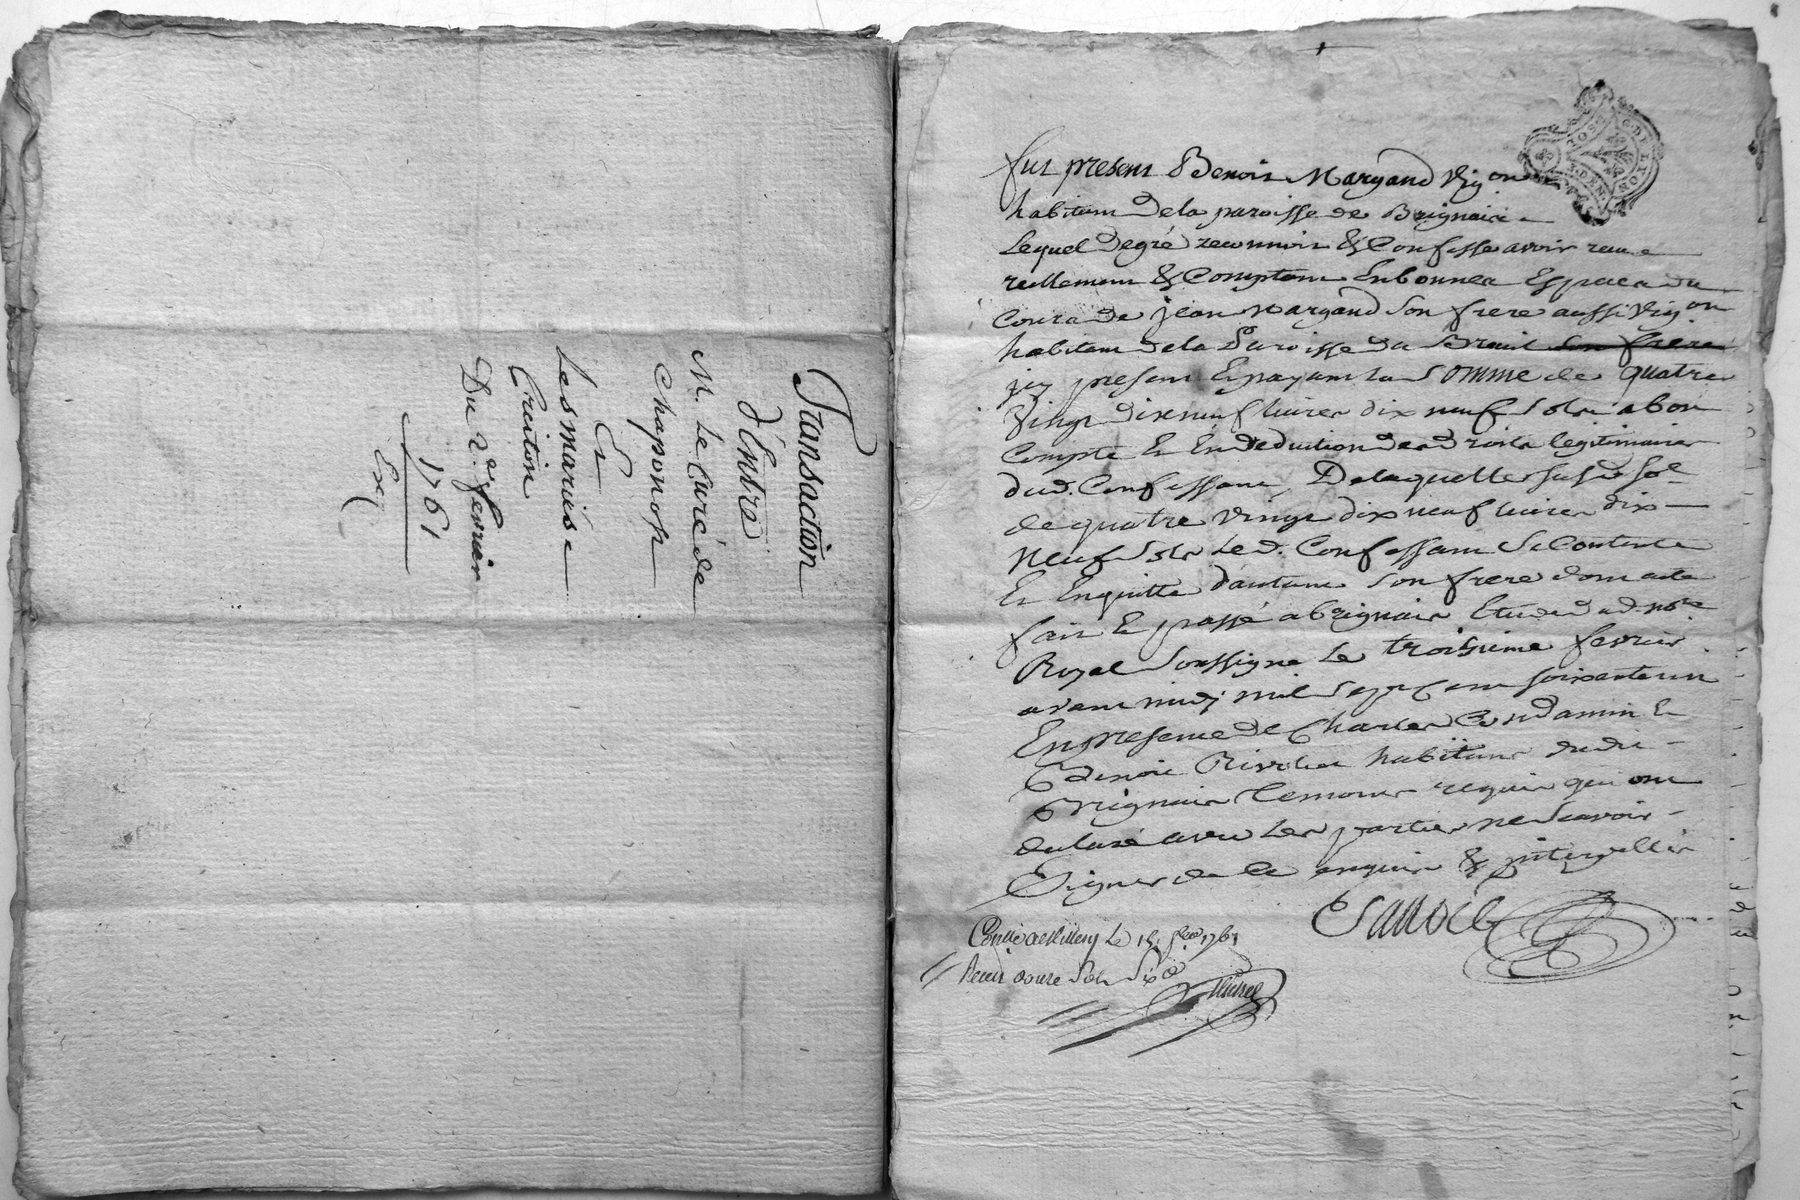 Transaction
d'Entre
M. Le Curé de
Chaponost
Et
Les mariés
Creiton
Du 2.e fevrier
1761
Ex
fut present Benoit Margand Vig.on
habitant de la paroisse de Brignais
Lequel de gré reconnoit & Confesse avoir receu
reellement & Comptant En bonnes Espaces du
Cours de jean Margand son frere aussi Vig.on
habitant de la Paroisse du Breuil son frere
jcy present Et payant La somme de quatre
Vingt dix neuf livres dix neuf sols a bon
Compte Et En deduction des droits legitimaires
dud. Confessant, De laquelle susd. so.e
de quatre vingt dix neuf livres dix
Neuf sols Led. Confessant se Contente
Et Enquitte d'autant son frere dont acte
fait Et passé a Brignais Etude dud. no.re
Royal soussigné Le troisieme fevrier
avant midy mil sept cent soixante un
En presence de Charles Condamin Et
Benoit Rivoire habitants dudit
Brignais temoins requis qui ont
declaré avec Les parties ne sçavoir
Signer de Ce enquis & interpellés
Conllé a st Geny Le 15. 1761
Receu douze sols six d
G. DE LYON